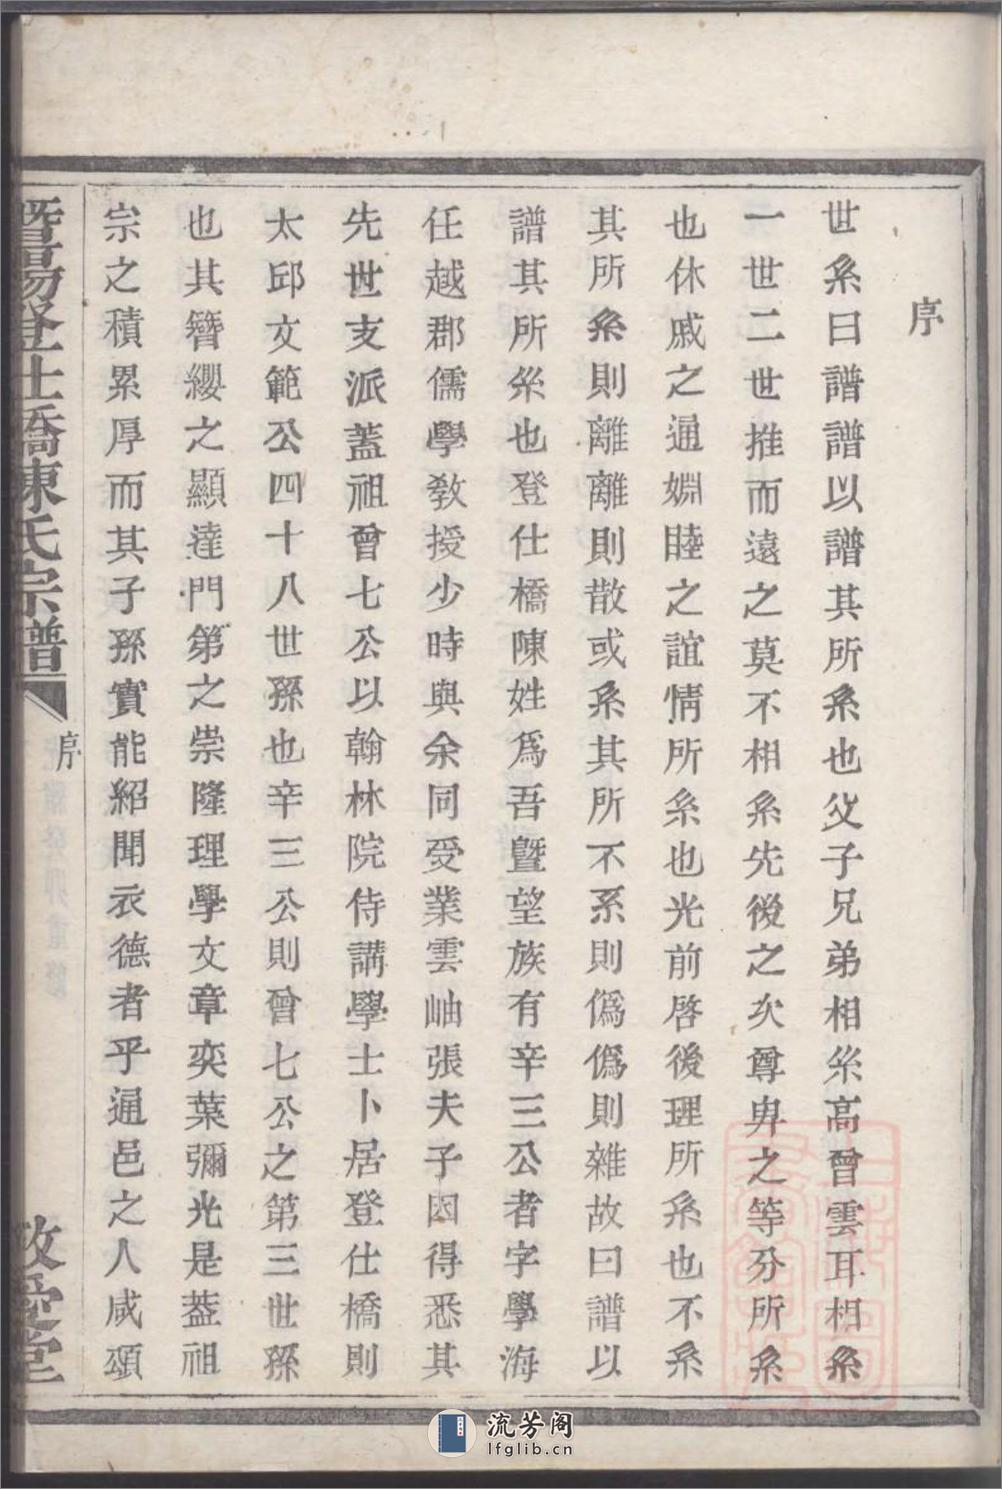 序
世系曰譜譜以譜其所系也父子兄弟相系高曾雲耳相系
一世二世推而遠之莫不相系先後之次尊卑之等分所系
也休戚之通婣睦之誼情所系也光前啓後理所系也不系
其所系則離離則散或系其所不系則僞僞則雜故曰譜以
譜其所系也登仕橋陳姓爲吾曁望族有辛三公者字學海
任越郡儒學教授少時與余同受業雲岫張夫子因得悉其
先世支派蓋祖曾七公以翰林院侍講學士卜居登仕橋則
太邱文範公四十八世孫也辛三公則曾七公之第三世孫
也其簪纓之顯達門第之崇隆理學文章奕葉彌光是葢祖
宗之積累厚而其子孫實能紹聞衣德者乎通邑之人咸頌
暨陽登仕橋陳氏宗譜
序
敬愛堂
流芳阁
lfglib.cn